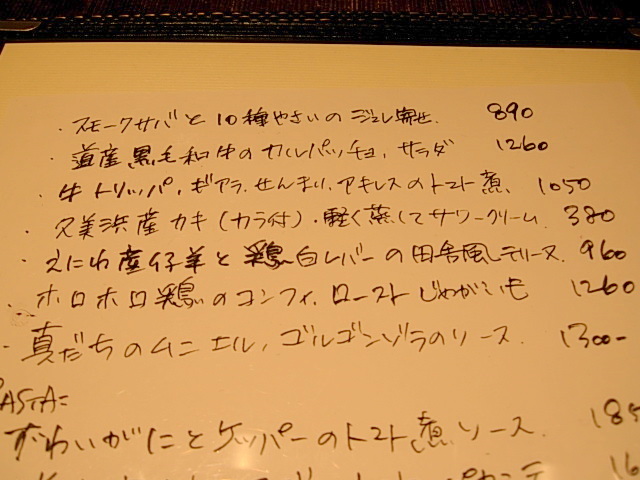 ・スモークサバと10種やさいのジュレ寄せ. 890
・道産黒毛和牛のカルパッチョ, サラダ 1260
・牛トリッパ, ギアラ, せんまい, アキレスのトマト煮, 1050
・久美浜産カキ(カラ付)・軽く蒸してサワークリーム. 380
・えにわ産仔羊と鶏白レバーの田舎風テリーヌ. 960
・ホロホロ鶏のコンフィ, ローストじゃがいも 1260
・真だちのムニエル, ゴルゴンゾラのソース. 1300-
PASTA=
ずわいがにとケッパーのトマト煮ソース. 185